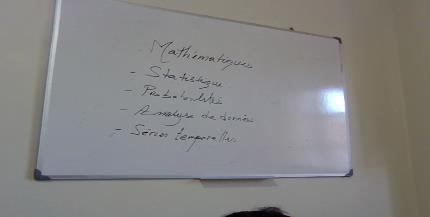 Mathématiques
- Statistique
- Probabilités
- Analyse de données
- Séries temporelles